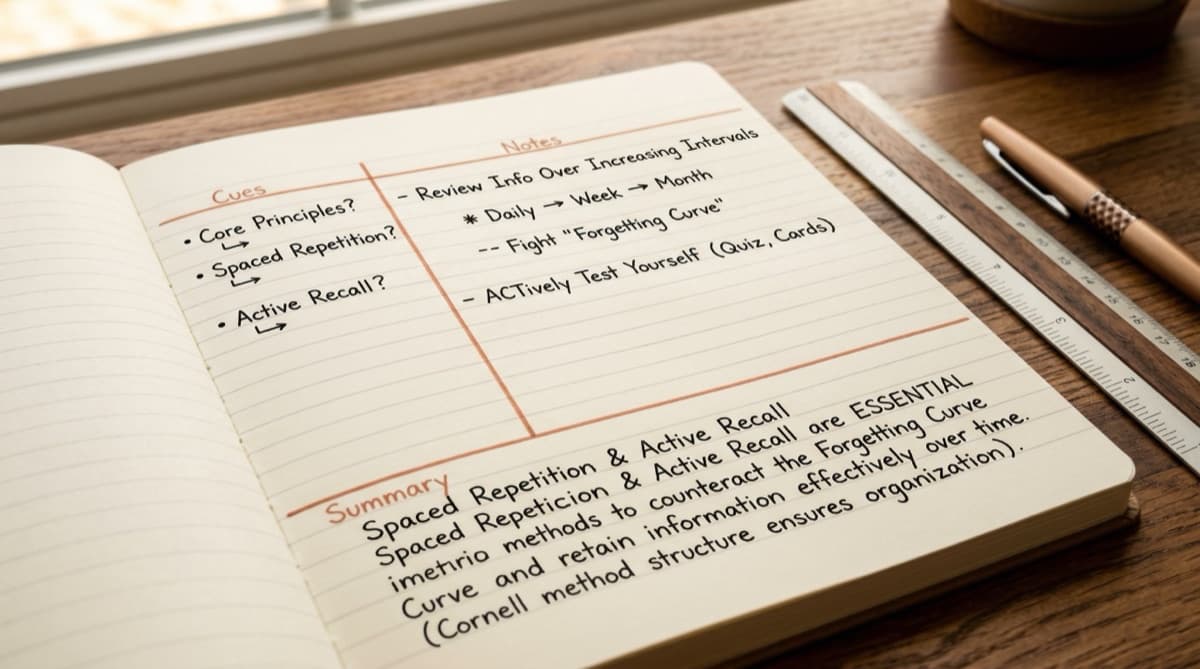 Cues
• Core Principles?
↳
• Spaced Repetition?
↳
• Active Recall?
↳
Notes
- Review Info Over Increasing Intervals
* Daily → Week → Month
-- Fight "Forgetting Curve"
- ACTively Test Yourself (Quiz, Cards)
Summary
Spaced Repetition & Active Recall
Spaced Repeticion & Active Recall are ESSENTIAL
imetrio methods to counteract the Forgetting Curve
Curve and retain information effectively over time.
(Cornell method structure ensures organization).